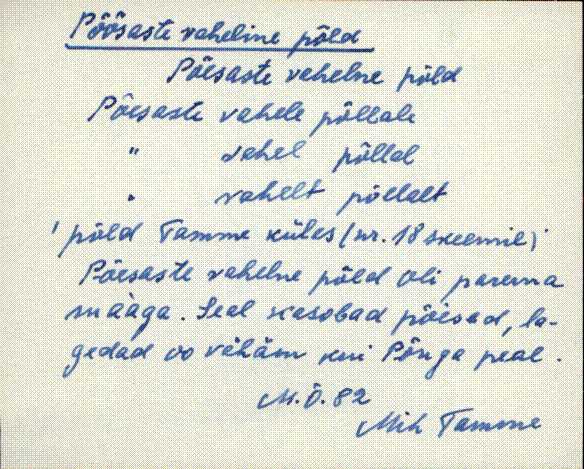 Põõsaste vaheline põld
Põesaste vahelne põld
Põesaste vahele põllale
" vahel põllal
" vahelt põllalt
' põld Tamme külas (nr. 18 skeemil)'
Põesaste vahelne põld oli parema
maaga. Seal kasobad põesad, la-
gedad oo vähäm kui Põnga peal.
M. Õ. 82
Mih Tamme